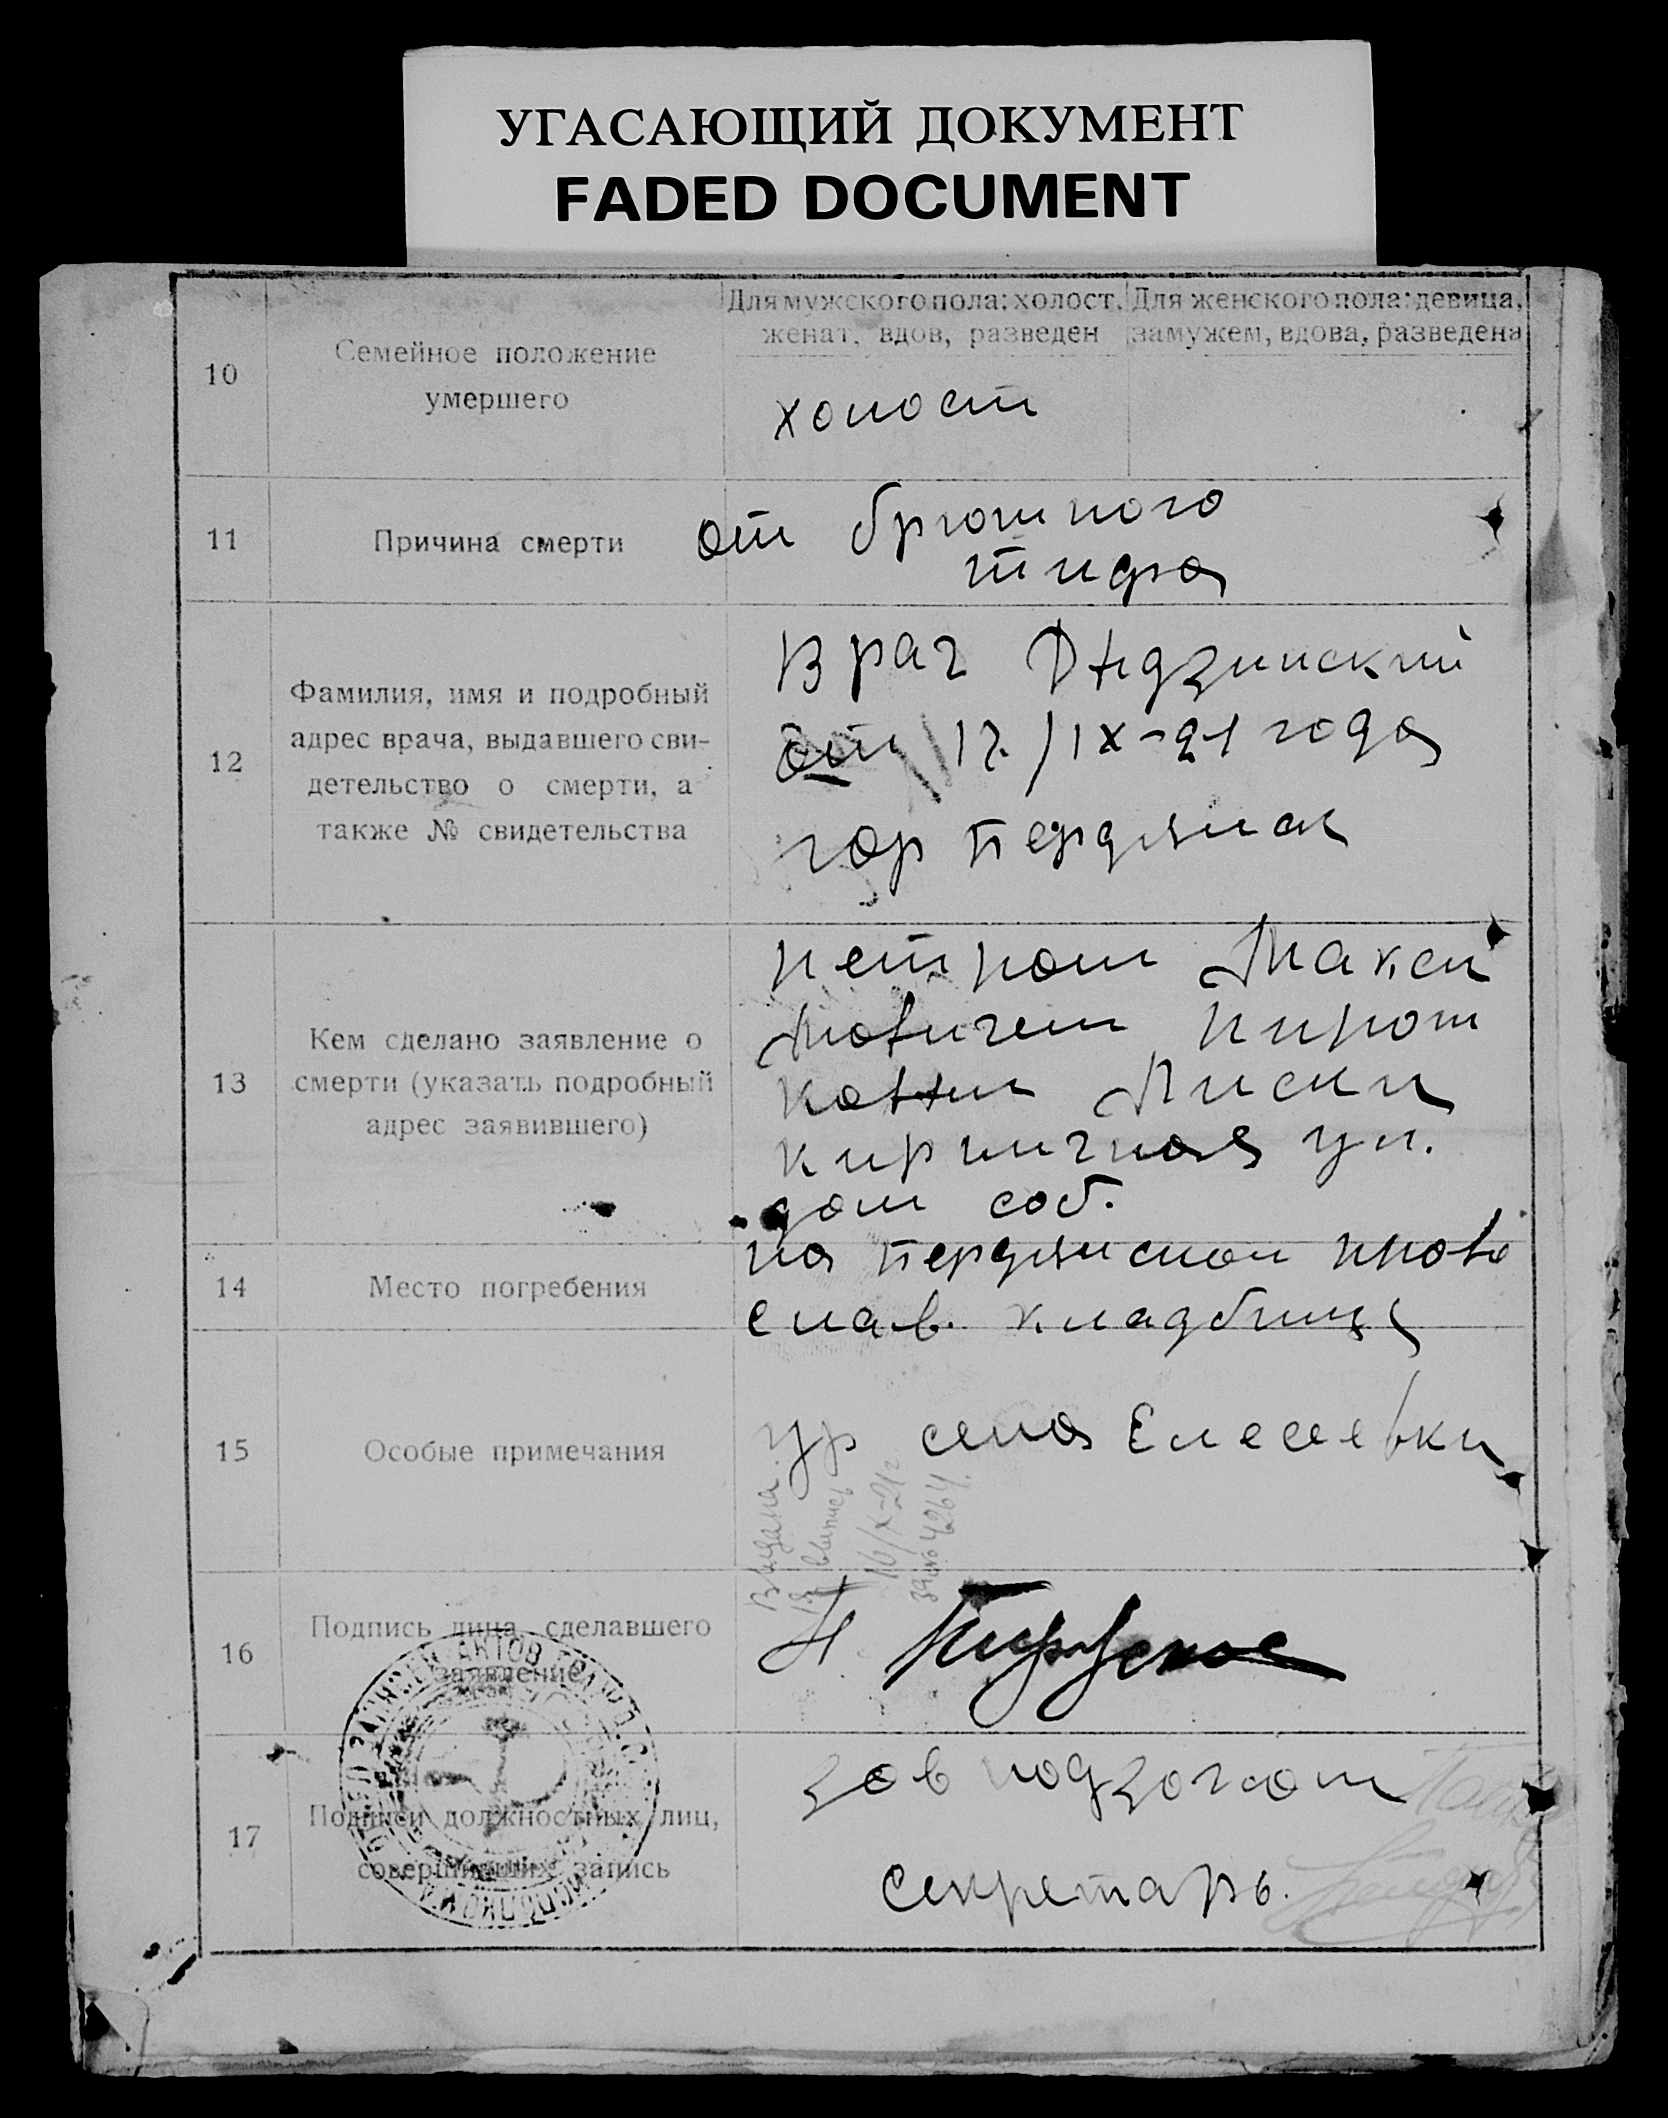 УГАСАЮЩИЙ ДОКУМЕНТ
FADED DOCUMENT
10
Семейное положение
умершего
Для мужского пола: холост,
женат, вдов, разведен
Для женского пола: девица,
замужем, вдова, разведена
холост
11
Причина смерти
от брюшного
тифа
12
Фамилия, имя и подробный
адрес врача, выдавшего сви-
детельство о смерти, а
также № свидетельства
Врач
от 17/IX-21 года
гор Бердянск
13
Кем сделано заявление о
смерти (указать подробный
адрес заявившего)
Петром Макси
мовичем
Лиски
кирпичная ул.
дом соб.
14
Место погребения
на Бердянском право
слав. кладбище
15
Особые примечания
ур села Елесеевки
Выдана
выпись
16/X-21г
за № 4264.
16
Подпись лица, сделавшего
заявление
17
Подписи должностных лиц,
совершивших запись
зав подзагом
секретарь.